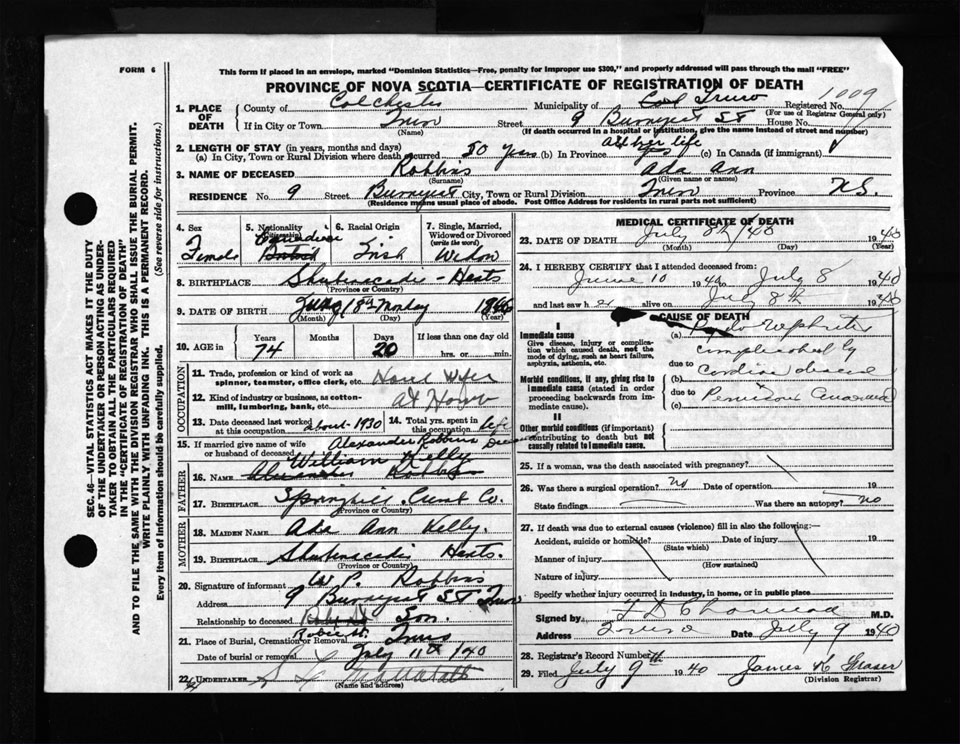 FORM 6
This form if placed in an envelope, marked "Dominion Statistics—Free, penalty for improper use $300," and properly addressed will pass through the mail "FREE"
PROVINCE OF NOVA SCOTIA—CERTIFICATE OF REGISTRATION OF DEATH
1. PLACE OF DEATH
County of Colchester Municipality of Truro Registered No. 1009
(For use of Registrar General only)
If in City or Town Truro Street 9 St House No.
(Name) (If death occurred in a hospital or institution, give the name instead of street and number)
2. LENGTH OF STAY (in years, months and days) All her life
(a) In City, Town or Rural Division where death occurred 50 years (b) In Province yes (c) In Canada (if immigrant)
3. NAME OF DECEASED Robbins Ada Ann
(Surname) (Given name or names)
RESIDENCE No. 9 Street City, Town or Rural Division Truro Province N.S.
(Residence means usual place of abode. Post Office Address for residents in rural parts not sufficient)
4. Sex Female
5. Nationality (Citizenship) Canadian British
6. Racial Origin Irish
7. Single, Married, Widowed or Divorced (write the word) Widow
8. BIRTHPLACE Shubenacadie - Hants
(Province or Country)
9. DATE OF BIRTH 18th Monday 1866
(Month) (Day) (Year)
10. AGE in Years 74 Months Days 20 If less than one day old hrs. or min.
OCCUPATION
11. Trade, profession or kind of work as spinner, teamster, office clerk, etc. House Wife
12. Kind of industry or business, as cotton-mill, lumbering, bank, etc. At Home
13. Date deceased last worked at this occupation about 1930
14. Total yrs. spent in this occupation life
15. If married give name of wife or husband of deceased Alexander Robbins
FATHER
William Kelly
16. NAME Alexander Robbins
17. BIRTHPLACE Springhill. Cumb Co.
(Province or Country)
MOTHER
18. MAIDEN NAME Ada Ann Kelly.
19. BIRTHPLACE Shubenacadie Hants.
(Province or Country)
20. Signature of informant W. P. Robbins
Address 9 St Truro
Relationship to deceased Son.
21. Place of Burial, Cremation or Removal Robie St. Truro
Date of burial or removal July 11th 1940
22. UNDERTAKER
(Name and address)
MEDICAL CERTIFICATE OF DEATH
23. DATE OF DEATH July 8th/40 1940
(Month) (Day) (Year)
24. I HEREBY CERTIFY that I attended deceased from:
June 10 1940 to July 8 1940
and last saw her alive on July 8th 1940
CAUSE OF DEATH
I
Immediate cause
Give disease, injury or complication which caused death, not the mode of dying, such as heart failure, asphyxia, asthenia, etc.
(a) Nephritis
complicated by
due to cardiac disease
Morbid conditions, if any, giving rise to immediate cause (stated in order proceeding backwards from immediate cause).
(b)
due to Pernicious Anaemia
(c)
II
Other morbid conditions (if important) contributing to death but not causally related to immediate cause.
25. If a woman, was the death associated with pregnancy?
26. Was there a surgical operation? no Date of operation 19
State findings Was there an autopsy? no
27. If death was due to external causes (violence) fill in also the following:—
Accident, suicide or homicide? Date of injury 19
(State which)
Manner of injury
(How sustained)
Nature of injury
Specify whether injury occurred in industry, in home, or in public place
Signed by M.D.
Address Truro Date July 9 1940
28. Registrar's Record Number
29. Filed July 9th 1940 James K Fraser
(Division Registrar)
SEC. 46—VITAL STATISTICS ACT MAKES IT THE DUTY
OF THE UNDERTAKER OR PERSON ACTING AS UNDERTAKER TO OBTAIN ALL THE PARTICULARS REQUIRED
IN THE "CERTIFICATE OF REGISTRATION OF DEATH"
AND TO FILE THE SAME WITH THE DIVISION REGISTRAR WHO SHALL ISSUE THE BURIAL PERMIT.
WRITE PLAINLY WITH UNFADING INK. THIS IS A PERMANENT RECORD.
Every item of information should be carefully supplied. (See reverse side for instructions.)